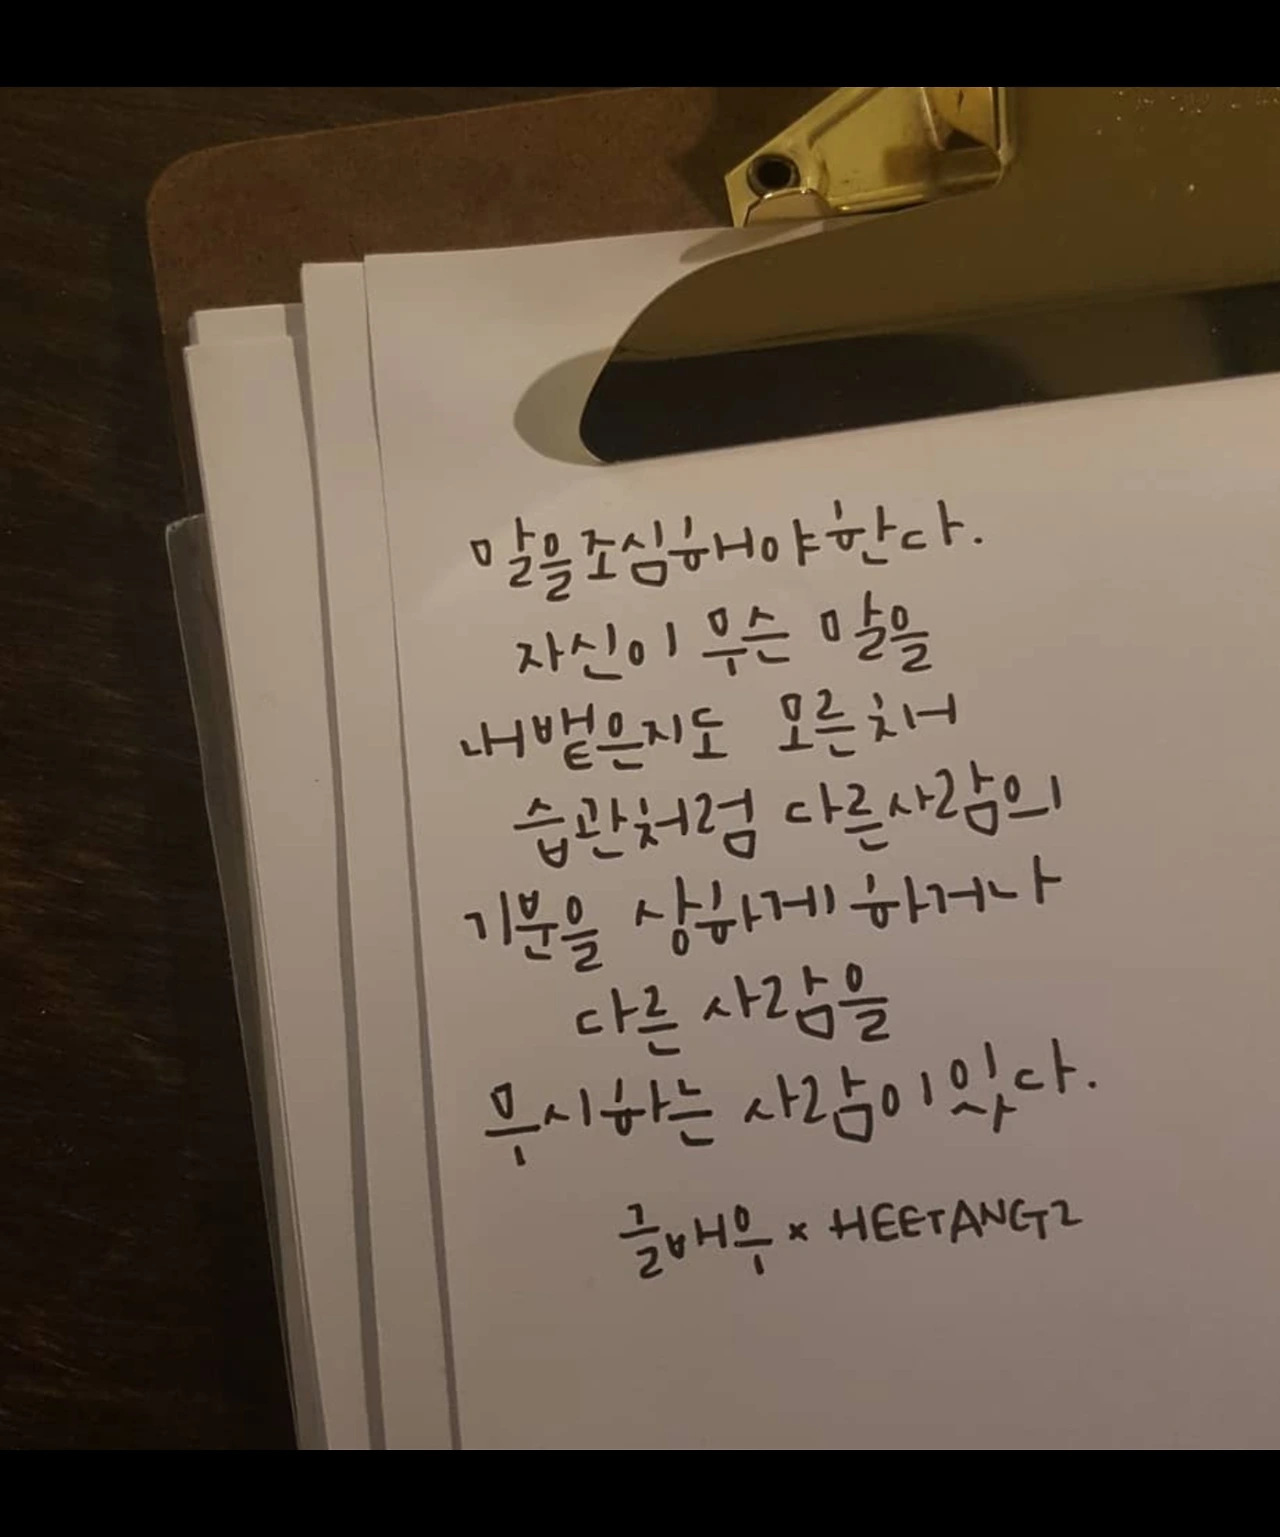 말을조심해야한다.
자신이 무슨 말을
내뱉은지도 모른채
습관처럼 다른사람의
기분을 상하게 하거나
다른 사람을
무시하는 사람이있다.
글배우 x HEETANG2